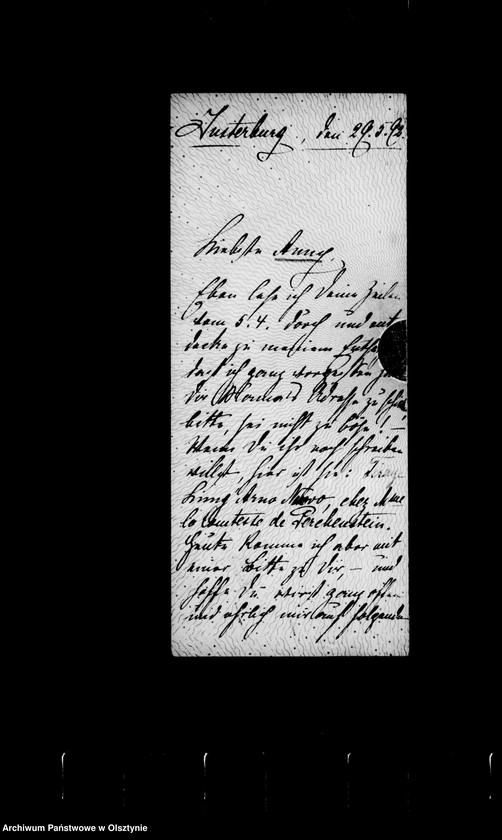 Insterburg, den 29.5.93.
Liebste Anny,
Eben lese ich Deine Zeilen
vom 5.4. durch und ent
decke zu meinem
daß ich ganz vergessen
Dir Adresse zu
bitte, sei nicht zu böse! –
Wenn Du ihr noch schreiben
willst, hier ist sie:
Lung Arno Nuovo, chez Mme
la Comtesse de Perchenstein.
Heute komme ich aber mit
einer Bitte zu Dir, – und
hoffe Du wirst ganz offen
und ehrlich mir auf folgende
Archiwum Państwowe w Olsztynie